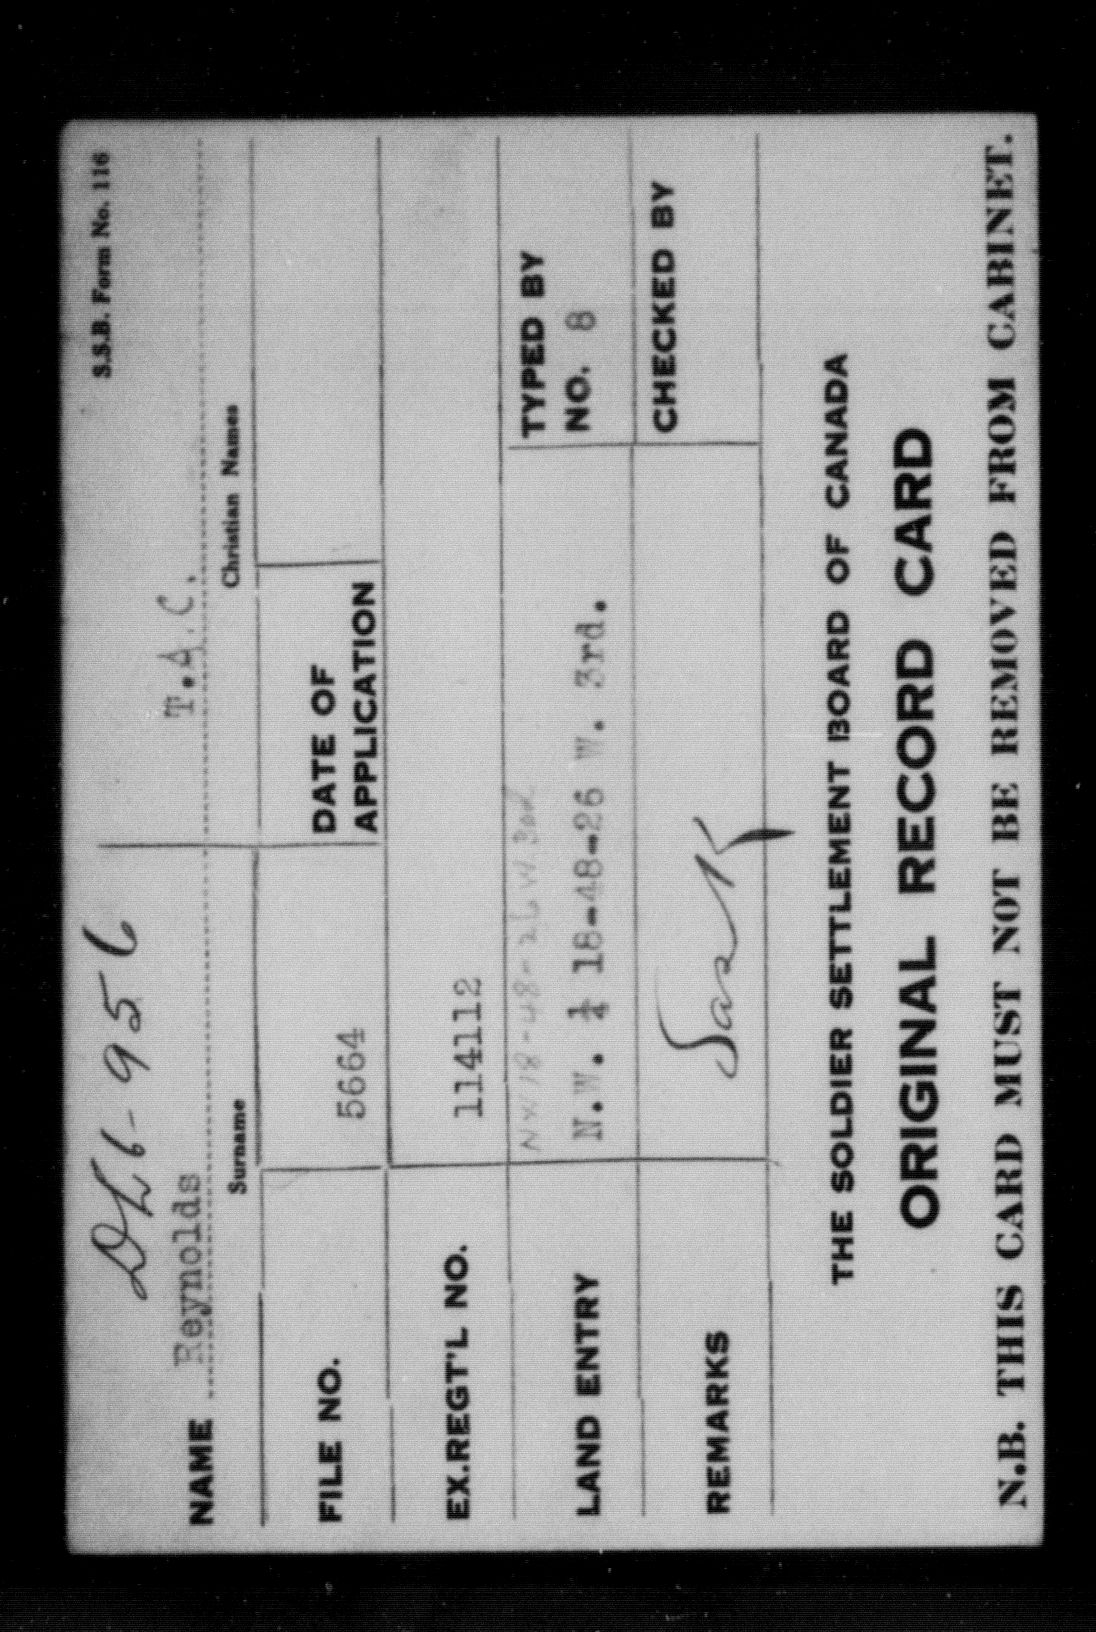 S.S.B. Form No. 116
DL6-956
NAME Reynolds T.A.C.
Surname Christian Names
FILE NO. 5664 DATE OF APPLICATION
EX.REGT'L NO. 114112
NW 18-48-26 W. 3rd
LAND ENTRY N.W. ¼ 18-48-26 W. 3rd.
TYPED BY
NO. 8
REMARKS Sask
CHECKED BY
THE SOLDIER SETTLEMENT BOARD OF CANADA
ORIGINAL RECORD CARD
N.B. THIS CARD MUST NOT BE REMOVED FROM CABINET.